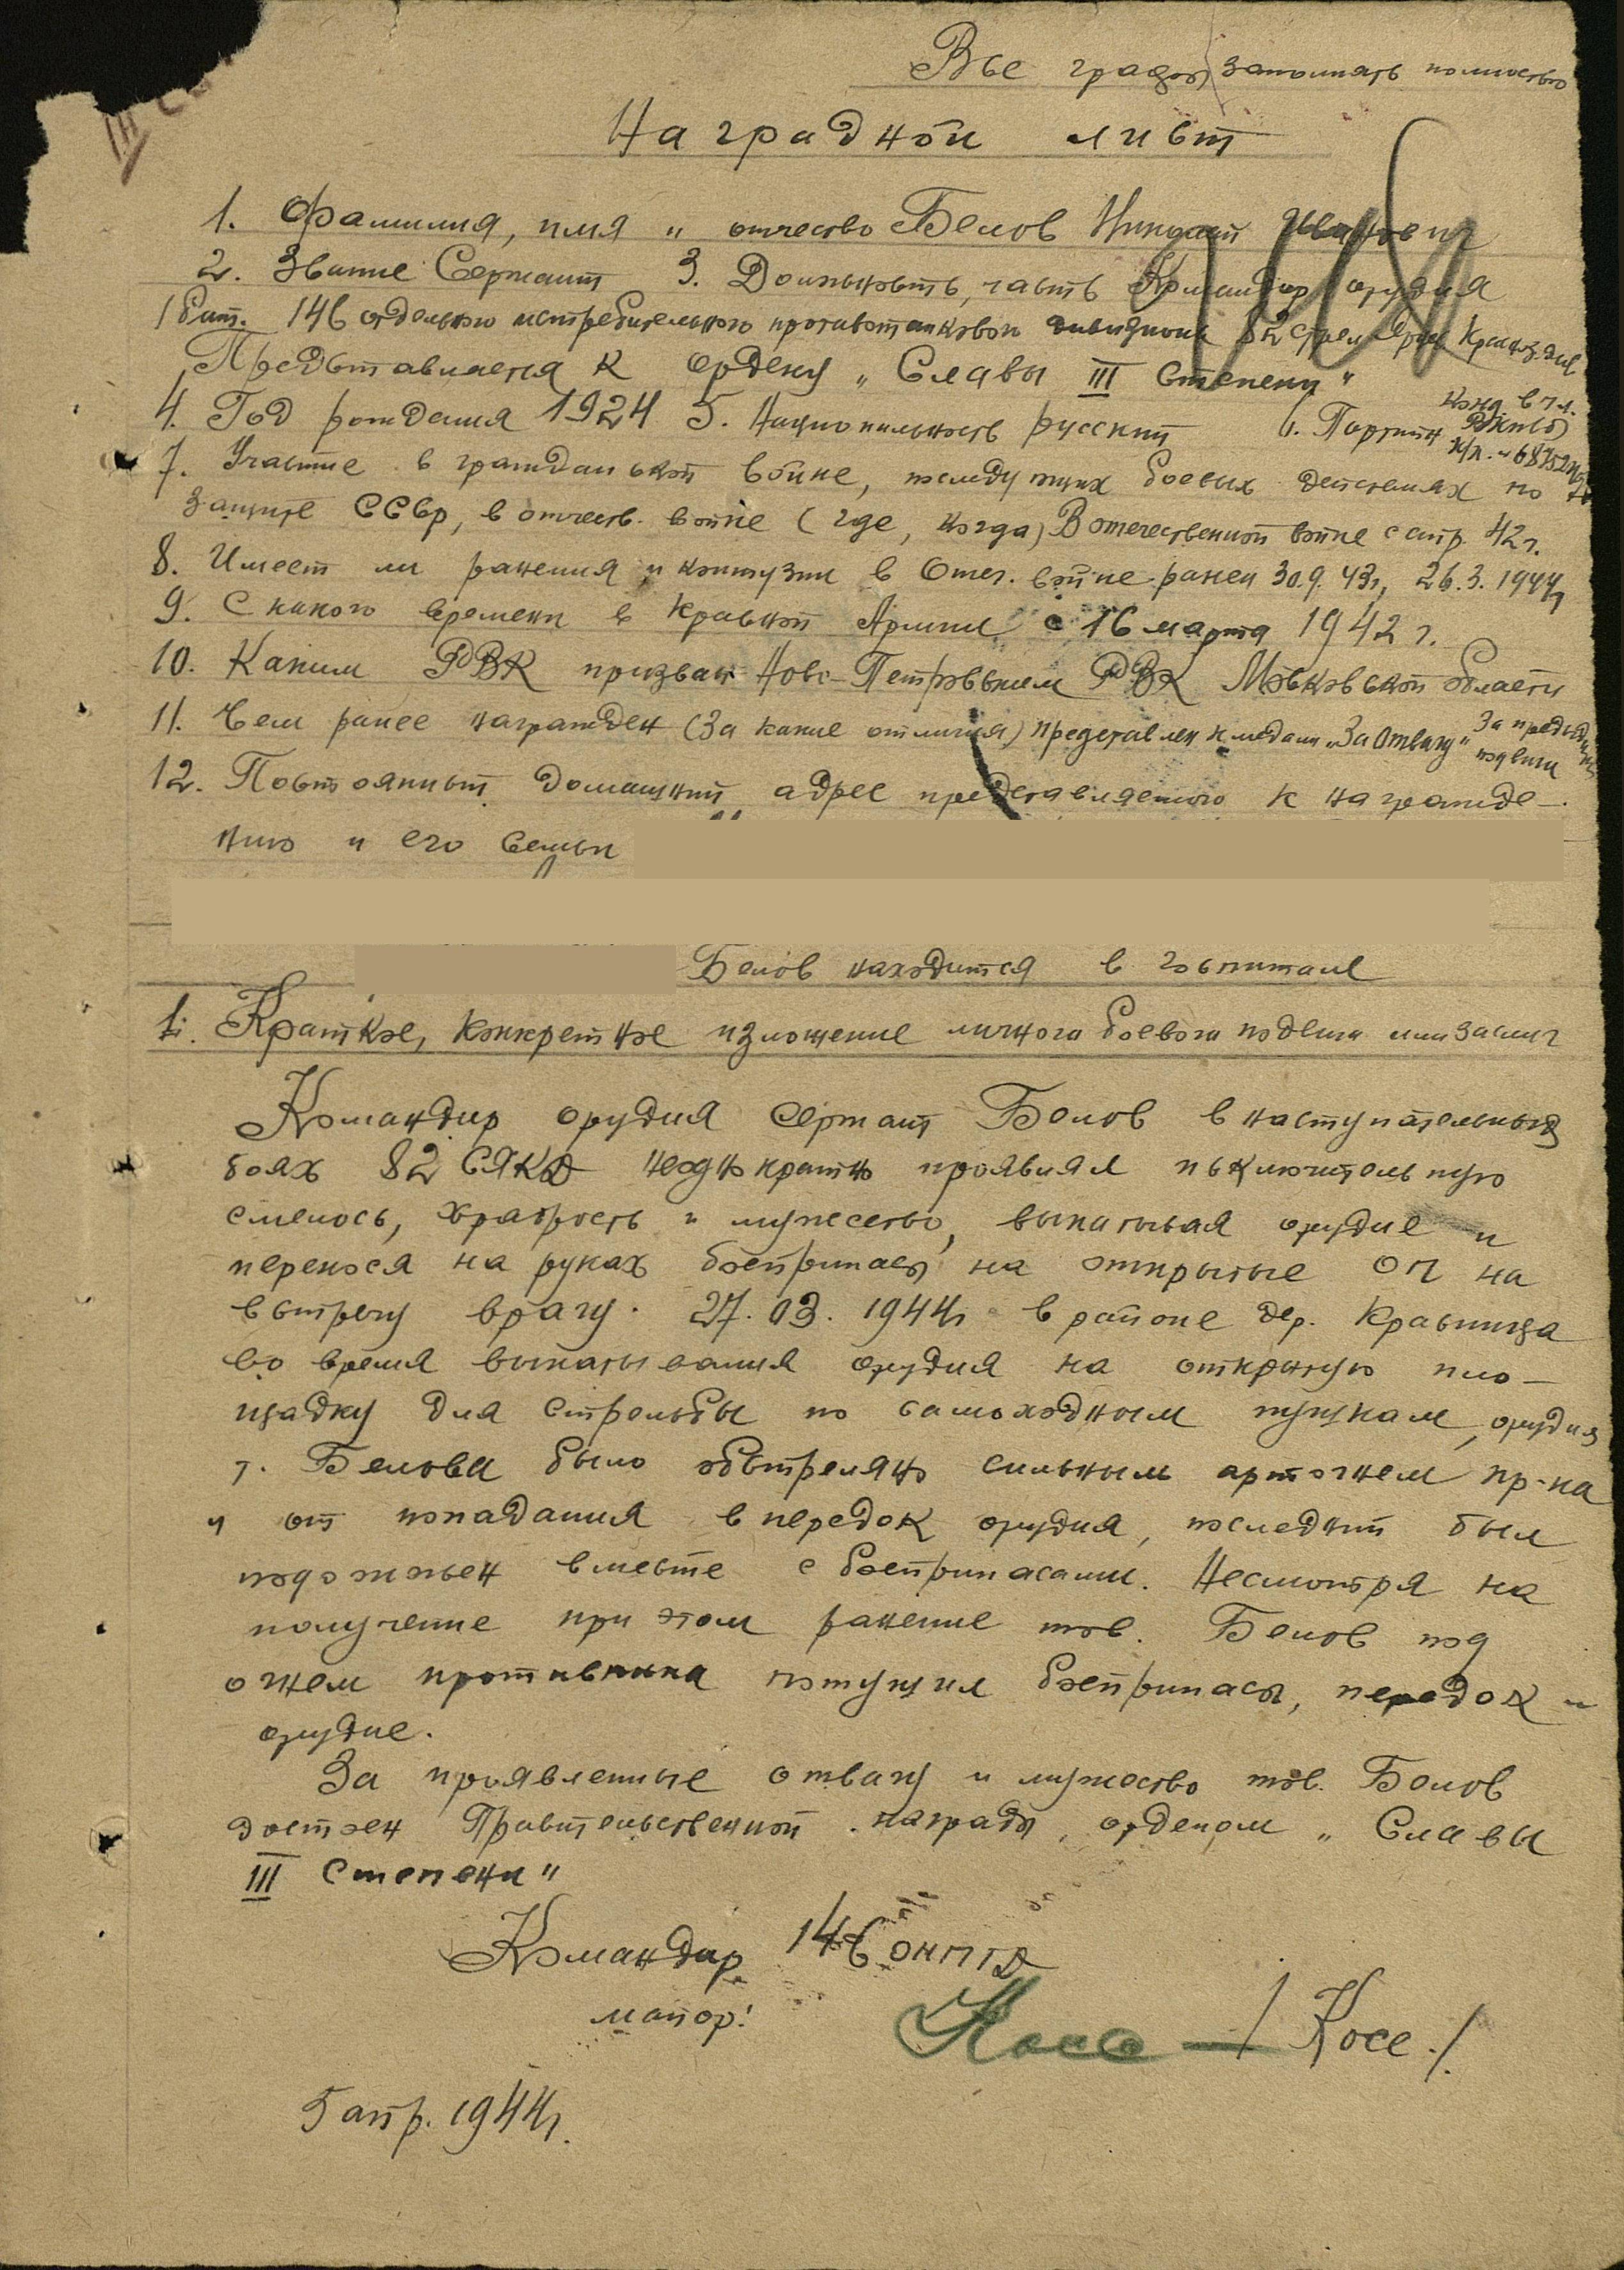 Все графы заполнять полностью
Наградной лист
1. Фамилия, имя и отчество Белов Николай Иванович
2. Звание Сержант 3. Должность, часть Командир орудия
1 бат. 146 отдельного истребительного противотанкового дивизиона 82 стрел Ярц. Краснoз. див
Представляется к ордену „Славы III степени"
4. Год рождения 1924 5. Национальность русский 6. Партийн
канд. в чл.
ВКП(б)
к/к.
7. Участие в гражданской войне, последующих боевых действиях по
защите СССР, в отечеств. войне (где, когда) В отечественной войне с апр. 42 г.
8. Имеет ли ранения и контузии в Отеч. войне ранен 30.9.43г, 26.3.1944г
9. С какого времени в Красной Армии с 16 марта 1942 г.
10. Каким РВК призван Ново-Петровским РВК Московской области
11. Чем ранее награжден (За какие отличия) представлен к медали „За Отвагу" За предыдущие
подвиги
12. Постоянный домашний адрес представляемого к награжде-
нию и его семьи
Белов находится в госпитале
1. Краткое, конкретное изложение личного боевого подвига или заслуг
Командир орудия Сержант Белов в наступательных
боях 82 СЯКД неоднократно проявлял исключительную
смелось, храбрость и мужество, выкатывая орудие и
перенося на руках боеприпасы на открытые ОП на
встречу врагу. 27.03.1944г в районе дер. Красница
во время выкатывания орудия на открытую пло-
щадку для стрельбы по самоходным пушкам, орудия
т. Белова было обстреляно сильным артогнем пр-ка
и от попадания в передок орудия, последний был
подожжен вместе с боеприпасами. Несмотря на
получение при этом ранение тов. Белов под
огнем противника потушил боеприпасы, передок и
орудие.
За проявленные отвагу и мужество тов. Белов
достоен Правительственной награды, орденом „Славы
III Степени"
Командир 146 ОИПТД
майор:
Косс / Косс /
5 апр. 1944г.